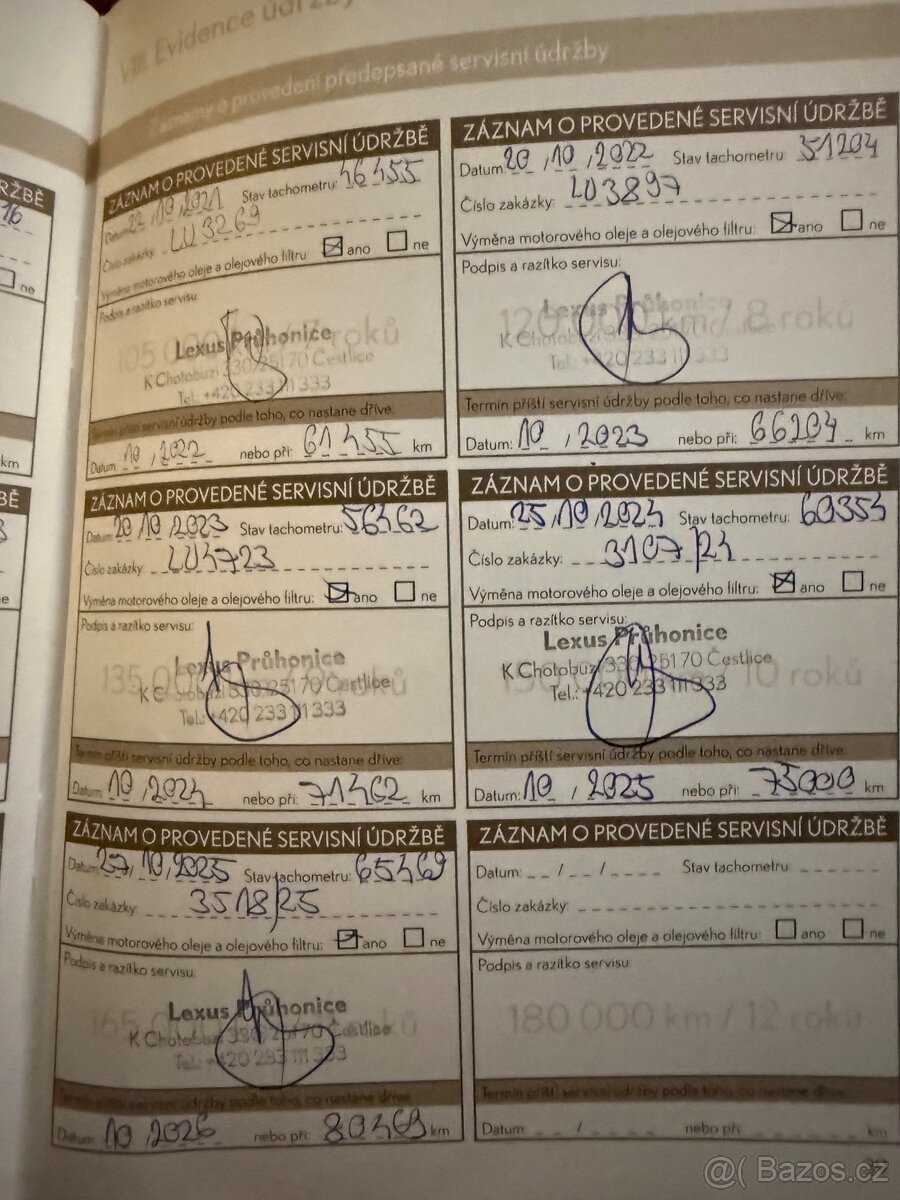 VIII. Evidence údržby
o provedení předepsané servisní údržby
ÚDRŽBĚ
16
ne
km
ZÁZNAM O PROVEDENÉ SERVISNÍ ÚDRŽBĚ
Datum: 22/10/2021 Stav tachometru: 46455
Číslo zakázky: LU3269
Výměna motorového oleje a olejového filtru: ano ne
Podpis a razítko servisu:
105 000 km / 7 roků
Lexus Průhonice
K Chotobuzi 330/251 70 Čestlice
Tel.: +420 233 111 333
Termín příští servisní údržby podle toho, co nastane dříve:
Datum: 10 / 2022 nebo při: 61455 km
ZÁZNAM O PROVEDENÉ SERVISNÍ ÚDRŽBĚ
Datum: 20/10/2022 Stav tachometru: 51204
Číslo zakázky: LU3897
Výměna motorového oleje a olejového filtru: ano ne
Podpis a razítko servisu:
120 000 km / 8 roků
Lexus Průhonice
K Chotobuzi 330/251 70 Čestlice
Tel.: +420 233 111 333
Termín příští servisní údržby podle toho, co nastane dříve:
Datum: 10 / 2023 nebo při: 66204 km
ZÁZNAM O PROVEDENÉ SERVISNÍ ÚDRŽBĚ
Datum: 20/10/2023 Stav tachometru: 56462
Číslo zakázky: LU4723
Výměna motorového oleje a olejového filtru: ano ne
Podpis a razítko servisu:
Lexus Průhonice
K Chotobuzi 330/251 70 Čestlice
Tel.: +420 233 111 333
Termín příští servisní údržby podle toho, co nastane dříve:
Datum: 10 / 2024 nebo při: 71462 km
ZÁZNAM O PROVEDENÉ SERVISNÍ ÚDRŽBĚ
Datum: 25/10/2024 Stav tachometru: 60354
Číslo zakázky: 3107/24
Výměna motorového oleje a olejového filtru: ano ne
Podpis a razítko servisu:
Lexus Průhonice
K Chotobuzi 330/251 70 Čestlice
10 roků
Tel.: +420 233 111 333
Termín příští servisní údržby podle toho, co nastane dříve:
Datum: 10 / 2025 nebo při: 75000 km
ZÁZNAM O PROVEDENÉ SERVISNÍ ÚDRŽBĚ
Datum: 27/10/2025 Stav tachometru: 65469
Číslo zakázky: 3518/25
Výměna motorového oleje a olejového filtru: ano ne
Podpis a razítko servisu:
Lexus Průhonice
K Chotobuzi 330/251 70 Čestlice
Tel.: +420 233 111 333
Termín příští servisní údržby podle toho, co nastane dříve:
Datum 10 / 2026 nebo při: 80469 km
ZÁZNAM O PROVEDENÉ SERVISNÍ ÚDRŽBĚ
Datum: _ _ / _ _ / _ _ _ _ Stav tachometru: _ _ _ _ _ _
Číslo zakázky:
Výměna motorového oleje a olejového filtru: ano ne
Podpis a razítko servisu:
180 000 km / 12 roků
Termín příští servisní údržby podle toho, co nastane dříve:
Datum _ _ / _ _ _ _ nebo při: km
@( Bazos.cz